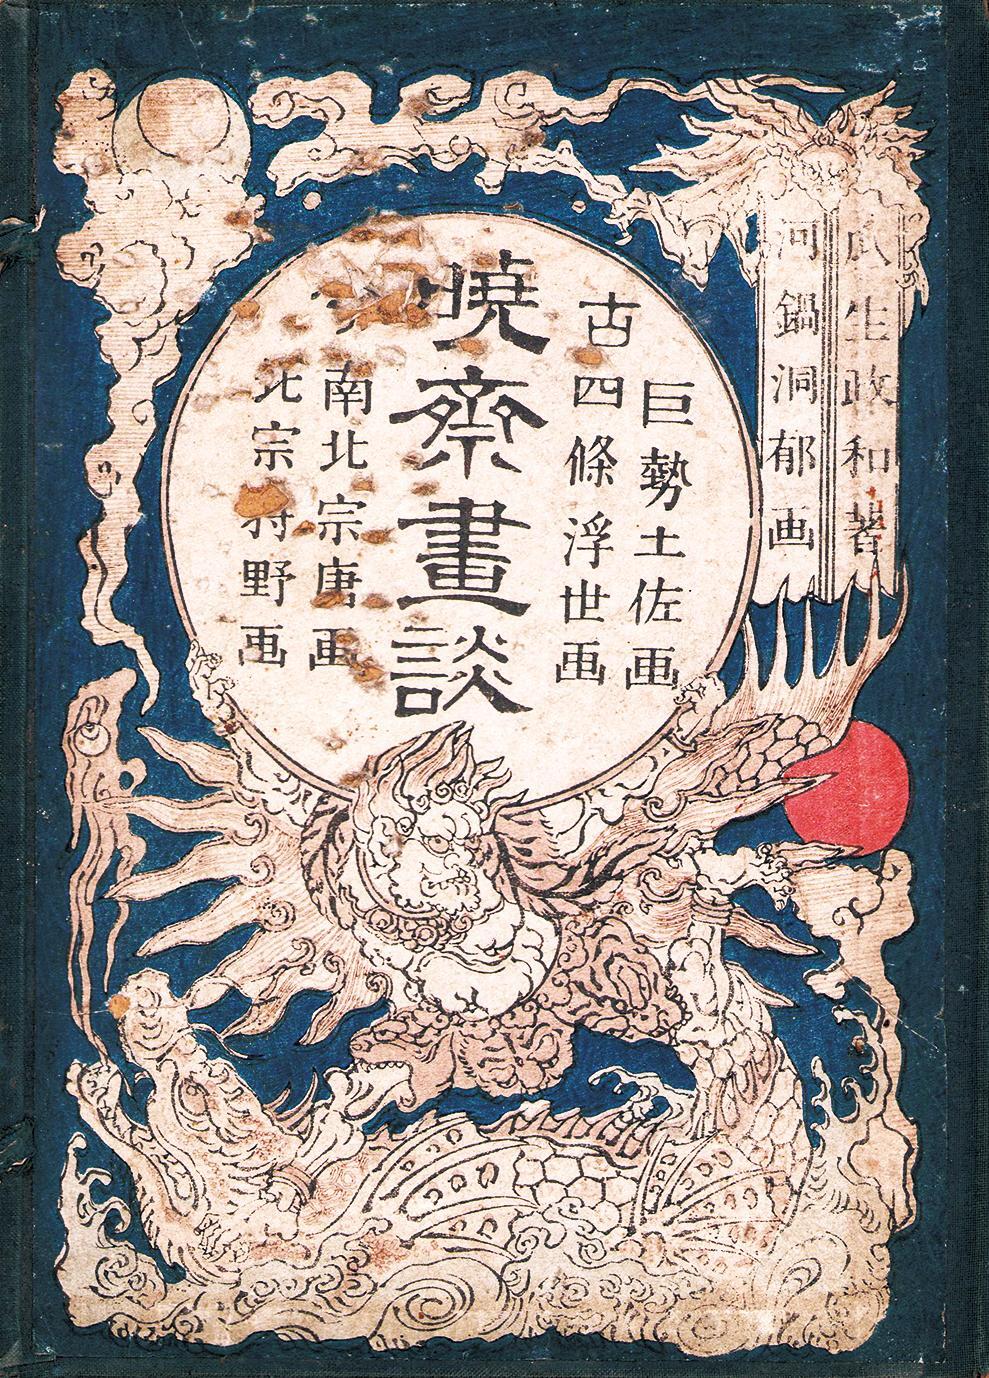 瓜生政和著
河鍋洞郁画
巨勢土佐画
古四條浮世画
曉斎畫談
南北宗唐画
北宗狩野画